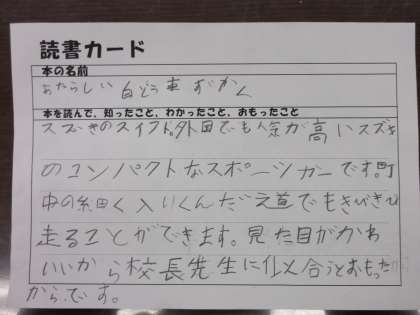 読書カード
本の名前
あたらしい 自どう車 ずかん
本を読んで、知ったこと、わかったこと、おもったこと
スズきのスイフト。外国でも人気が高いスズキ
のコンパクトなスポーツカーです。町
中の細く入りくんだ道でもきびきび
走ることができます。見た目がかわ
いいから校長先生に似合うとおもった
からです。